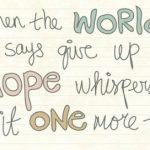 hen the WORLD
says give up
HOPE whispers
it one more